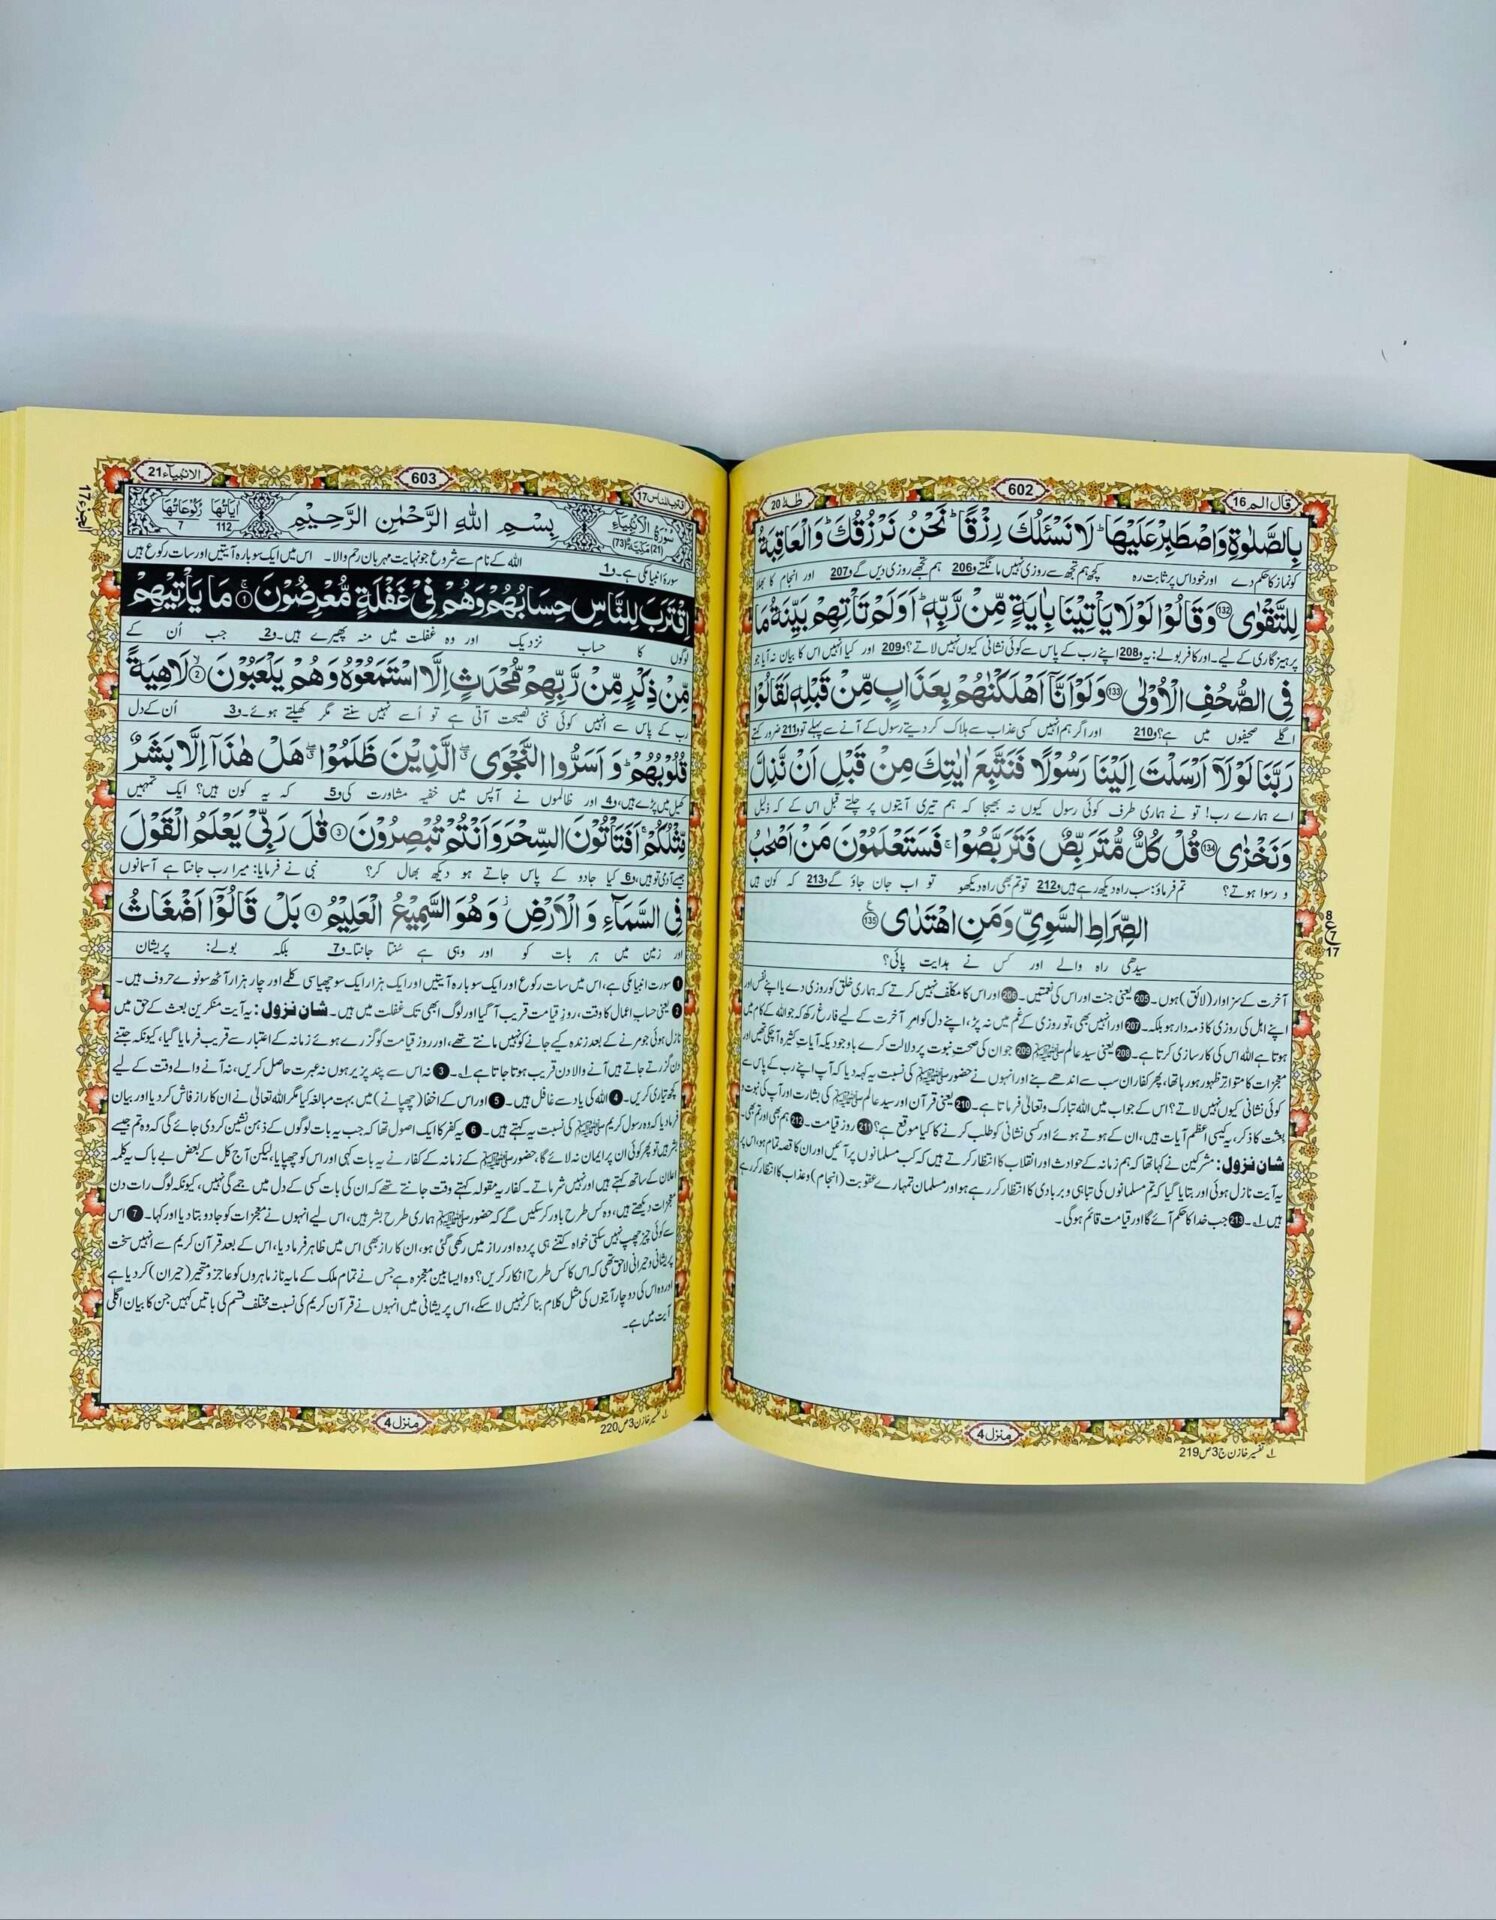 قال الم 16
602
طٰهٰ 20
بِالصَّلٰوةِ وَاصْطَبِرْ عَلَيْهَا ؕ لَا نَسْئَلُكَ رِزْقًا ؕ نَحْنُ نَرْزُقُكَ ؕ وَالْعَاقِبَةُ
کو نماز کا حکم دے اور خود اس پر ثابت رہ کچھ ہم تجھ سے روزی نہیں مانگتے و206 ہم تجھے روزی دیں گے و207 اور انجام کا بھلا
لِلتَّقْوٰى ﴿132﴾ وَقَالُوْا لَوْلَا يَاْتِيْنَا بِاٰيَةٍ مِّنْ رَّبِّهٖ ؕ اَوَلَمْ تَاْتِهِمْ بَيِّنَةُ مَا
پرہیزگاری کے لیے۔ اور کافر بولے: یہ و208 اپنے رب کے پاس سے کوئی نشانی کیوں نہیں لاتے؟ و209 اور کیا انہیں اس کا بیان نہ آیا جو
فِى الصُّحُفِ الْاُوْلٰى ﴿133﴾ وَلَوْ اَنَّاۤ اَهْلَكْنٰهُمْ بِعَذَابٍ مِّنْ قَبْلِهٖ لَقَالُوْا
اگلے صحیفوں میں ہے؟ و210 اور اگر ہم انہیں کسی عذاب سے ہلاک کر دیتے رسول کے آنے سے پہلے تو و211 ضرور کہتے
رَبَّنَا لَوْلَاۤ اَرْسَلْتَ اِلَيْنَا رَسُوْلًا فَنَتَّبِعَ اٰيٰتِكَ مِنْ قَبْلِ اَنْ نَّذِلَّ
اے ہمارے رب! تو نے ہماری طرف کوئی رسول کیوں نہ بھیجا کہ ہم تیری آیتوں پر چلتے قبل اس کے کہ ذلیل
وَنَخْزٰى ﴿134﴾ قُلْ كُلٌّ مُّتَرَبِّصٌ فَتَرَبَّصُوْا ۚ فَسَتَعْلَمُوْنَ مَنْ اَصْحٰبُ
و رسوا ہوتے؟ تم فرماؤ: سب راہ دیکھ رہے ہیں و212 تو تم بھی راہ دیکھو تو اب جان جاؤ گے و213 کہ کون ہیں
الصِّرَاطِ السَّوِىِّ وَمَنِ اهْتَدٰى ﴿135﴾
8
ع
7
17
سیدھی راہ والے اور کس نے ہدایت پائی؟
آخرت کے سزاوار (لائق) ہوں۔ 205 یعنی جنت اور اس کی نعمتیں۔ 206 اور اس کا مکلف نہیں کرتے کہ ہماری خلق کو روزی دے یا اپنے نفس اور
اپنے اہل کی روزی کا ذمہ دار ہو بلکہ۔ 207 اور انہیں بھی، تو روزی کے غم میں نہ پڑ، اپنے دل کو امرِ آخرت کے لیے فارغ رکھ کہ جو اللہ کے کام میں
ہوتا ہے اللہ اس کی کارسازی کرتا ہے۔ 208 یعنی سید عالم ﷺ 209 جو ان کی صحتِ نبوت پر دلالت کرے باوجودیکہ آیات کثیرہ آچکی تھیں اور
معجزات کا متواتر ظہور ہو رہا تھا، پھر کفار ان سب سے اندھے بنے اور انہوں نے حضور ﷺ کی نسبت یہ کہہ دیا کہ آپ اپنے رب کے پاس سے
کوئی نشانی کیوں نہیں لاتے؟ اس کے جواب میں اللہ تبارک وتعالیٰ فرماتا ہے۔ 210 یعنی قرآن اور سید عالم ﷺ کی بشارت اور آپ کی نبوت و
بعثت کا ذکر، یہ کیسی اعظم آیات ہیں، ان کے ہوتے ہوئے اور کسی نشانی کو طلب کرنے کا کیا موقع ہے؟ 211 روز قیامت۔ 212 ہم بھی اور تم بھی۔
شان نزول: مشرکین نے کہا تھا کہ ہم زمانہ کے حوادث اور انقلاب کا انتظار کرتے ہیں کہ کب مسلمانوں پر آئیں اور ان کا قصہ تمام ہو، اس پر
یہ آیت نازل ہوئی اور بتایا گیا کہ تم مسلمانوں کی تباہی و بربادی کا انتظار کر رہے ہو اور مسلمان تمہارے عقوبت (انجام) و عذاب کا انتظار کر رہے
ہیں۔ 213 جب خدا کا حکم آئے گا اور قیامت قائم ہوگی۔
منزل 4
تفسیر خازن ج3 ص219
اقترب للناس 17
603
الانبیآء 21
الجزء 17
سُوْرَةُ الْاَنْبِيَآءِ
(21) مَكِّيَّةٌ (73)
بِسْمِ اللهِ الرَّحْمٰنِ الرَّحِيْمِ
اٰيَاتُهَا 112
رُكُوْعَاتُهَا 7
سورۂ انبیا مکی ہے۔ و1 اللہ کے نام سے شروع جو نہایت مہربان رحم والا۔ اس میں ایک سو بارہ آیتیں اور سات رکوع ہیں
اِقْتَرَبَ لِلنَّاسِ حِسَابُهُمْ وَهُمْ فِىْ غَفْلَةٍ مُّعْرِضُوْنَ ﴿1﴾ مَا يَاْتِيْهِمْ
لوگوں کا حساب نزدیک اور وہ غفلت میں منہ پھیرے ہیں۔ و2 جب اُن کے
مِّنْ ذِكْرٍ مِّنْ رَّبِّهِمْ مُّحْدَثٍ اِلَّا اسْتَمَعُوْهُ وَهُمْ يَلْعَبُوْنَ ﴿2﴾ لَاهِيَةً
رب کے پاس سے انہیں کوئی نئی نصیحت آتی ہے تو اُسے نہیں سنتے مگر کھیلتے ہوئے۔ و3 اُن کے دل
قُلُوْبُهُمْ ؕ وَاَسَرُّوا النَّجْوَى ۖ الَّذِيْنَ ظَلَمُوْا ۖ هَلْ هٰذَاۤ اِلَّا بَشَرٌ
کھیل میں پڑے ہیں، و4 اور ظالموں نے آپس میں خفیہ مشاورت کی و5 کہ یہ کون ہیں؟ ایک تمہیں
مِّثْلُكُمْ ۚ اَفَتَاْتُوْنَ السِّحْرَ وَاَنْتُمْ تُبْصِرُوْنَ ﴿3﴾ قٰلَ رَبِّىْ يَعْلَمُ الْقَوْلَ
جیسے آدمی تو ہیں، و6 کیا جادو کے پاس جاتے ہو دیکھ بھال کر؟ نبی نے فرمایا: میرا رب جانتا ہے آسمانوں
فِى السَّمَآءِ وَالْاَرْضِ ۫ وَهُوَ السَّمِيْعُ الْعَلِيْمُ ﴿4﴾ بَلْ قَالُوْۤا اَضْغَاثُ
اور زمین میں ہر بات کو اور وہی ہے سُنتا جانتا۔ و7 بلکہ بولے: پریشان
1 سورت انبیا مکی ہے، اس میں سات رکوع اور ایک سو بارہ آیتیں اور ایک ہزار ایک سو چھیاسی کلمے اور چار ہزار آٹھ سو نوے حروف ہیں۔
2 یعنی حساب اعمال کا وقت، روزِ قیامت قریب آگیا اور لوگ ابھی تک غفلت میں ہیں۔ شان نزول: یہ آیت منکرین بعث کے حق میں
نازل ہوئی جو مرنے کے بعد زندہ کیے جانے کو نہیں مانتے تھے، اور روز قیامت کو گزرے ہوئے زمانہ کے اعتبار سے قریب فرمایا گیا، کیونکہ جتنے
دن گزرتے جاتے ہیں آنے والا دن قریب ہوتا جاتا ہے۔ 3 نہ اس سے پند پذیر ہوں نہ عبرت حاصل کریں، نہ آنے والے وقت کے لیے
کچھ تیاری کریں۔ 4 اللہ کی یاد سے غافل ہیں۔ 5 اور اس کے اخفا (چھپانے) میں بہت مبالغہ کیا مگر اللہ تعالیٰ نے ان کا راز فاش کردیا اور بیان
فرما دیا کہ وہ رسول کریم ﷺ کی نسبت یہ کہتے ہیں۔ 6 یہ کفر کا ایک اصول تھا کہ جب یہ بات لوگوں کے ذہن نشین کردی جائے گی کہ وہ تم جیسے
بشر ہیں تو پھر کوئی ان پر ایمان نہ لائے گا، حضور ﷺ کے زمانہ کے کفار نے یہ بات کہی اور اس کو چھپایا، لیکن آج کل کے بعض بے باک یہ کلمہ
اعلان کے ساتھ کہتے ہیں اور نہیں شرماتے۔ کفار یہ مقولہ کہتے وقت جانتے تھے کہ ان کی بات کسی کے دل میں جمے گی نہیں، کیونکہ لوگ رات دن
معجزات دیکھتے ہیں، وہ کس طرح باور کرسکیں گے کہ حضور ﷺ ہماری طرح بشر ہیں، اس لیے انہوں نے معجزات کو جادو بتا دیا اور کہا۔ 7 اس
سے کوئی چیز چھپ نہیں سکتی خواہ کتنے ہی پردہ اور راز میں رکھی گئی ہو، ان کا راز بھی اس میں ظاہر فرما دیا، اس کے بعد قرآن کریم سے انہیں سخت
پریشانی و حیرانی لاحق تھی کہ اس کا کس طرح انکار کریں؟ وہ ایسا بین معجزہ ہے جس نے تمام ملک کے مایہ ناز ماہروں کو عاجز و متحیر (حیران) کردیا ہے
اور وہ اس کی دو چار آیتوں کی مثل کلام بنا کر نہیں لا سکے، اس پریشانی میں انہوں نے قرآن کریم کی نسبت مختلف قسم کی باتیں کہیں جن کا بیان اگلی
آیت میں ہے۔
منزل 4
تفسیر خازن 3 ص220